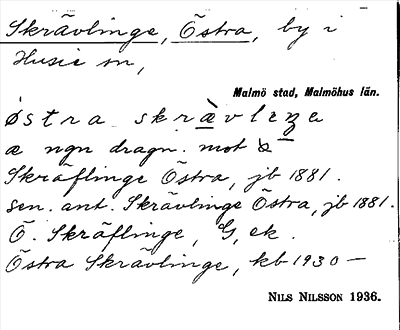 Skrävlinge, Östra, by i
Husie sn,
Malmö stad, Malmöhus län.
östra skrävleŋe
æ ngn dragn. mot
Skräflinge Östra, jb 1881.
sen. ant. Skrävlinge Östra, jb 1881.
Ö. Skräflinge, G, ek.
Östra Skrävlinge, kb 1930 —
NILS NILSSON 1936.